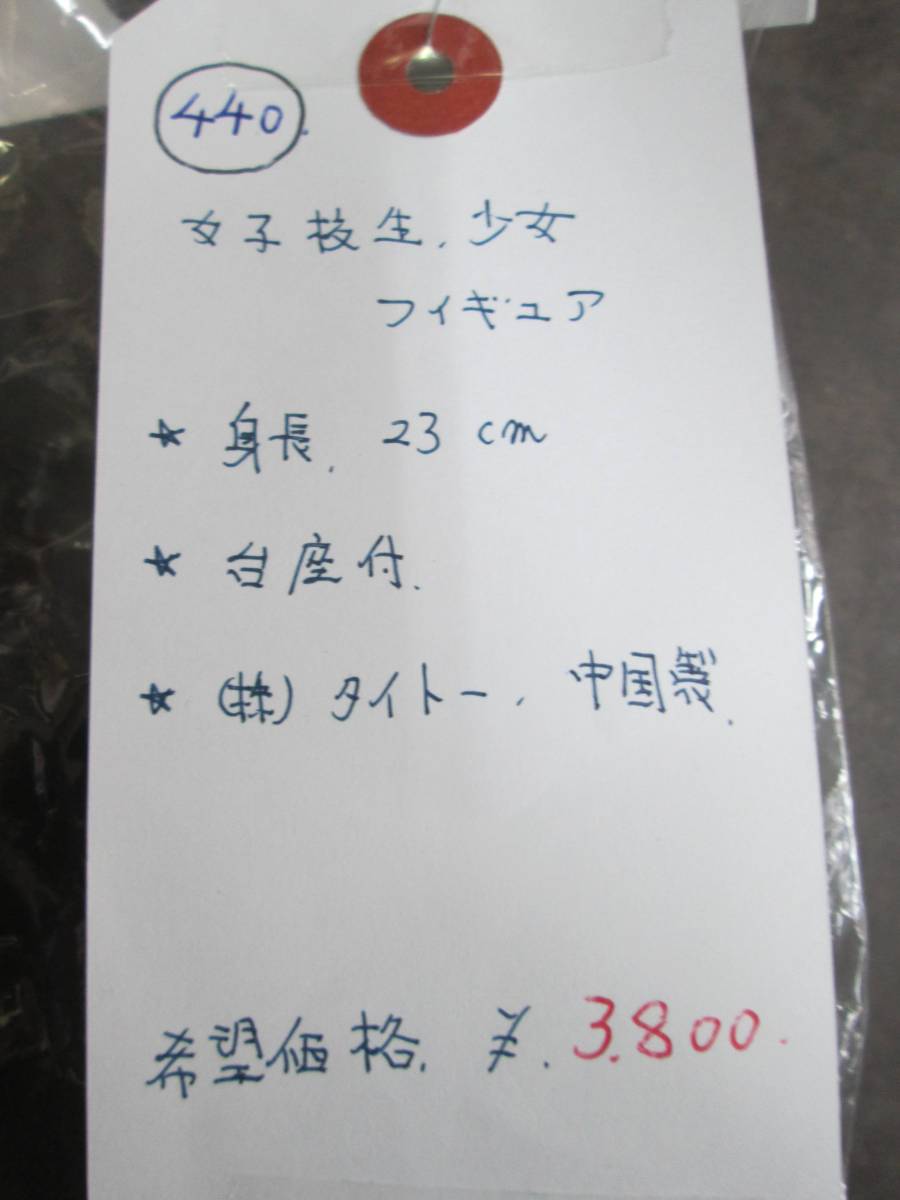 440.
女子校生、少女
フィギュア
★ 身長、23 cm
★ 台座付.
★ (株) タイトー、中国製.
希望価格. ¥. 3.800.